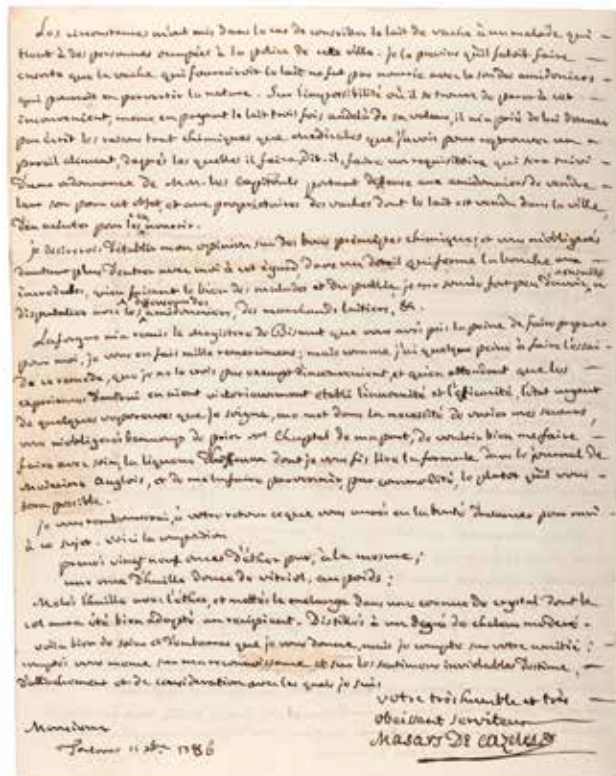 Les circonstances m'ont mis dans le cas de conseiller le lait de vache à un malade qui
tient à des personnes occupées à la police de cette ville. je la prévins qu'il faloit faire
ensorte que la vache qui fourniroit le lait ne fut pas nourrie avec le son des amidoniers
qui pouvoit en pervertir la nature. Sur l'impossibilité où il se trouve de parer à cet
inconvenient, meme en payant le lait trois fois audelà de sa valeur, il m'a prié de lui donner
par écrit les raisons tant chimiques que medicales que j'avois pour reprouver un
pareil aliment, d'après lesquelles il faira, dit-il, faire un requisitoire qui sera suivi
d'une ordonnance de MM. les Capitouls portant deffense aux amidonniers de vendre
leur son pour cet objet, et aux proprietaires des vaches dont le lait est vendu dans la ville,
d'en acheter pour les nourrir.
je desirerois d'établir mon opinion sur des bons principes chimiques; et vous m'obligeriés
dautant plus d'entrer avec moi à cet égard dans un detail qui ferme la bouche aux
incredules, qu'en faisant le bien des malades et du public, je me soucie fort peu d'avoir
disputailler avec les amidonniers, des marchands laitiers, &.
Laforgue m'a remis le Magistere de Bismut que vous avés pris la peine de faire preparer
pour moi, je vous en fais mille remerciemens; mais comme j'ai quelque peine à faire l'essai
de ce remede, que je ne le crois pas exempt d'inconvenient, et qu'en attendant que les
experiences d'autrui en aient victorieusement etabli l'innocuité et l'efficacité, l'état urgent
de quelques vaporeuses que je soigne, me met dans la necessité de varier mes secours,
vous m'obligerés beaucoup de prier Mr Chaptal de ma part, de vouloir bien me faire
faire avec soin, la liqueur d'hoffman dont je vous fis lire la formule dans le journal de
Medecine Anglois, et de me la faire parvenir par commodité, le plutot qu'il vous
sera possible.
je vous rembourserai, à votre retour ce que vous aurés eu la bonté d'avancer pour moi
à ce sujet. voici la composition
prenés vingt neuf onces d'éther pur, à la mesure;
une once d'huille douce de vitriol, au poids;
Melés l'huille avec l'éther, et mettés le melange dans une cornue de crystal dont le
col aura été bien adapté au recipient. Distillés à un degré de chaleur moderé.
voila bien de soins et d'embarras que je vous donne, mais je compte sur votre amitié;
comptés vous meme sur ma reconnoissance et sur les sentimens inviolables d'estime,
d'attachement et de consideration avec les quels je suis
votre très humble et très
obeissant serviteur
Masars De Cazeles
Monsieur
Toulouse 1786